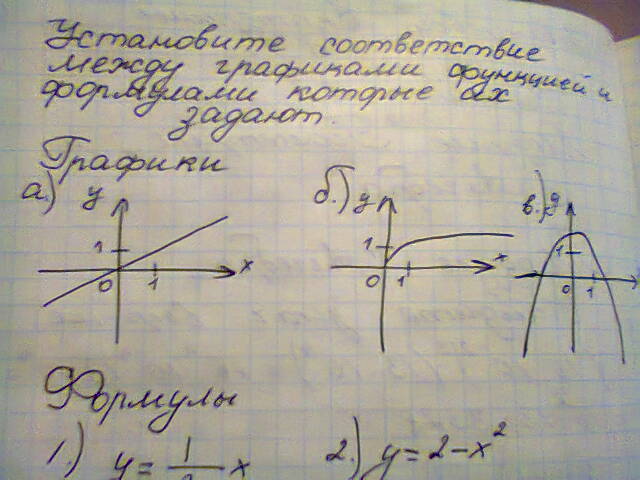 Установите соответствие
между графиками функцией и
формулами которые их
задают.
Графики
а.) y 1 0 1 x
б.) y 1 0 1 x
в.) y 1 0 1
Формулы
1.) y = 1/2 x
2.) y = 2 - x²